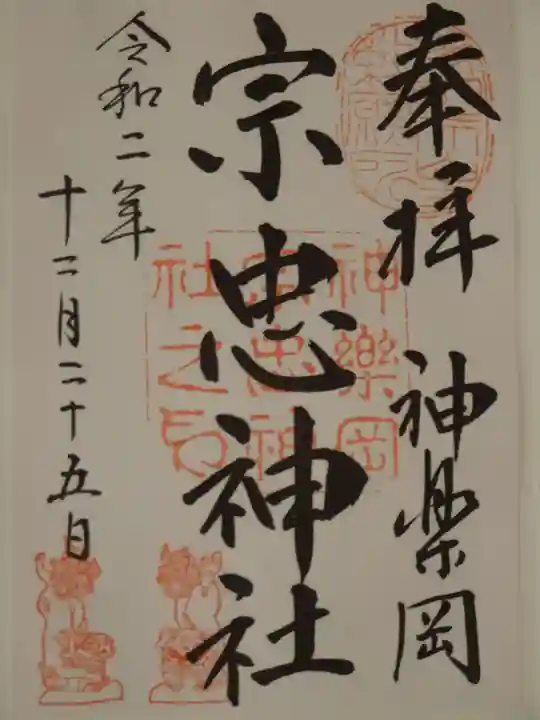 奉拝　神楽岡
宗忠神社
令和二年
十二月二十五日
神樂岡
宗忠神
社之印